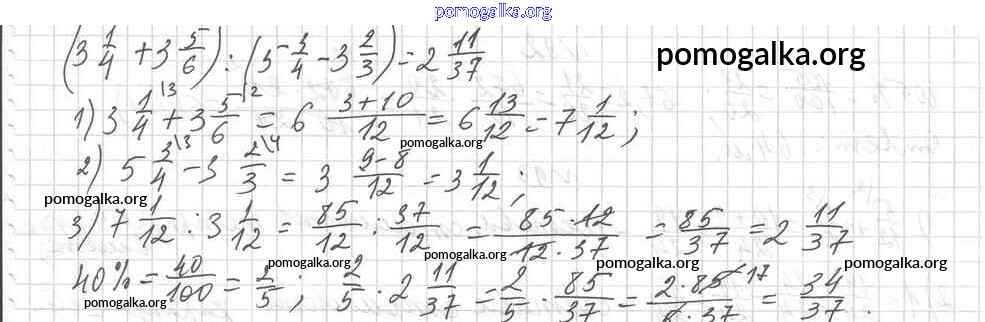 pomogalka.org
(3 1/4 + 3 5/6) : (5 3/4 - 3 2/3) = 2 11/37
pomogalka.org
1) 3 1/4 |3 + 3 5/6 |2 = 6 3+10/12 = 6 13/12 = 7 1/12 ;
pomogalka.org
2) 5 3/4 \3 - 3 2/3 \4 = 3 9-8/12 = 3 1/12 ;
pomogalka.org
3) 7 1/12 : 3 1/12 = 85/12 : 37/12 = 85·12/12·37 = 85/37 = 2 11/37
pomogalka.org pomogalka.org pomogalka.org pomogalka.org
40% = 40/100 = 2/5 ; 2/5 · 2 11/37 = 2/5 · 85/37 = 2·85 17/5·37 = 34/37 .
pomogalka.org